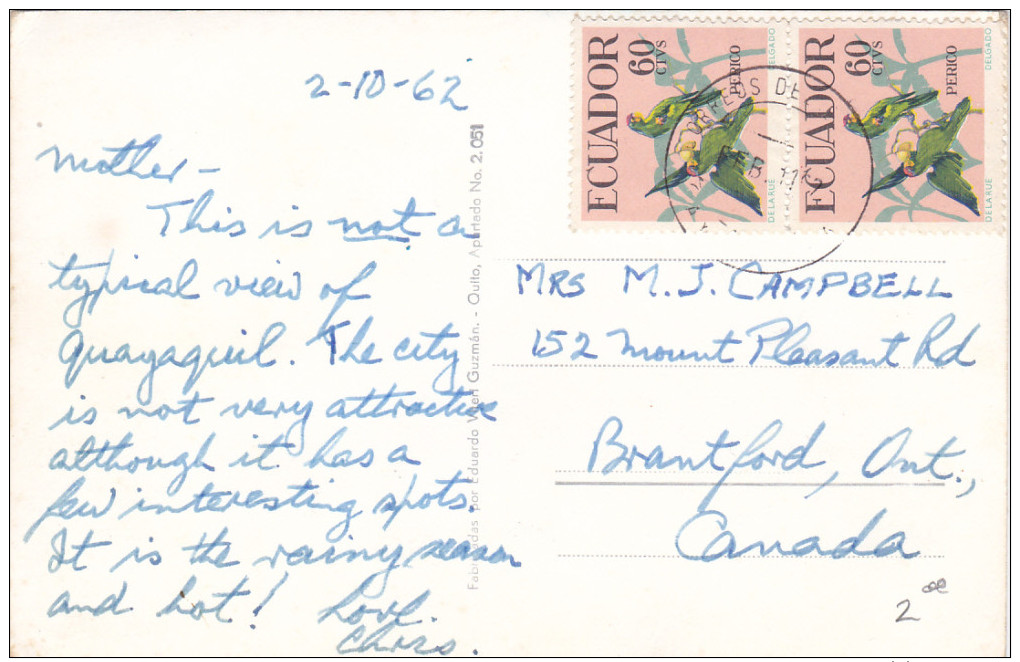 2-10-62
Mother -
This is not a
typical view of
Guayaquil. The city
is not very attractive
although it has a
few interesting spots.
It is the rainy season
and hot! Love.
Chris.
Fabricadas por Eduardo Guzmán. - Quito, Apartado No. 2.051
ECUADOR
60
CTVS
PERICO
DELGADO
DELARUE
ECUADOR
60
CTVS
PERICO
DELGADO
DELARUE
CORREOS DE
FEB.
MRS M. J. CAMPBELL
152 Mount Pleasant Rd
Brantford, Ont.,
Canada
2 00